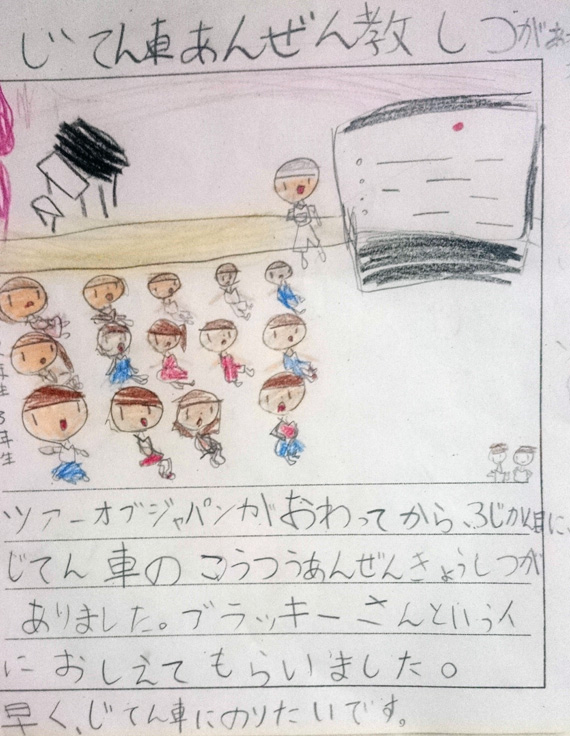 じてん車あんぜん教しつがあ
年生
3年生
ツアーオブジャパンがおわってから、3じかん目に、
じてん車のこうつうあんぜんきょうしつが
ありました。ブラッキーさんという人
におしえてもらいました。
早く、じてん車にのりたいです。